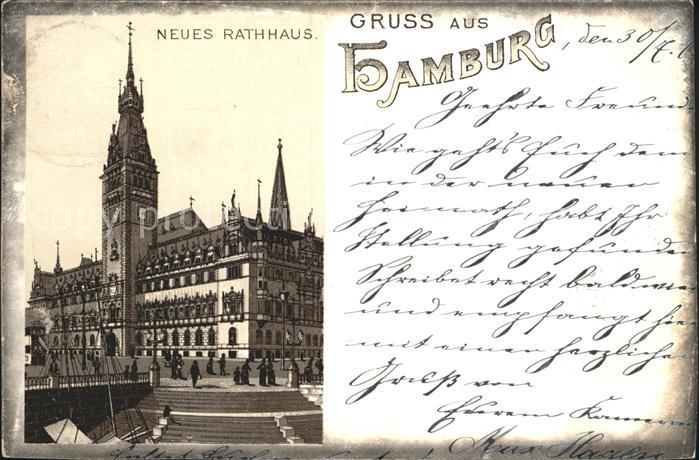 NEUES RATHHAUS.
GRUSS AUS
HAMBURG, den 30/7.
Geehrte Freun
Wie geht's Euch denn
in der neuen
Heimath, habt Ihr
Stellung gefunde
Schreibet recht bald wie
und empfangt hie
mit einen herzliche
Gruß von
Eurem Kamera
Max
copy protected